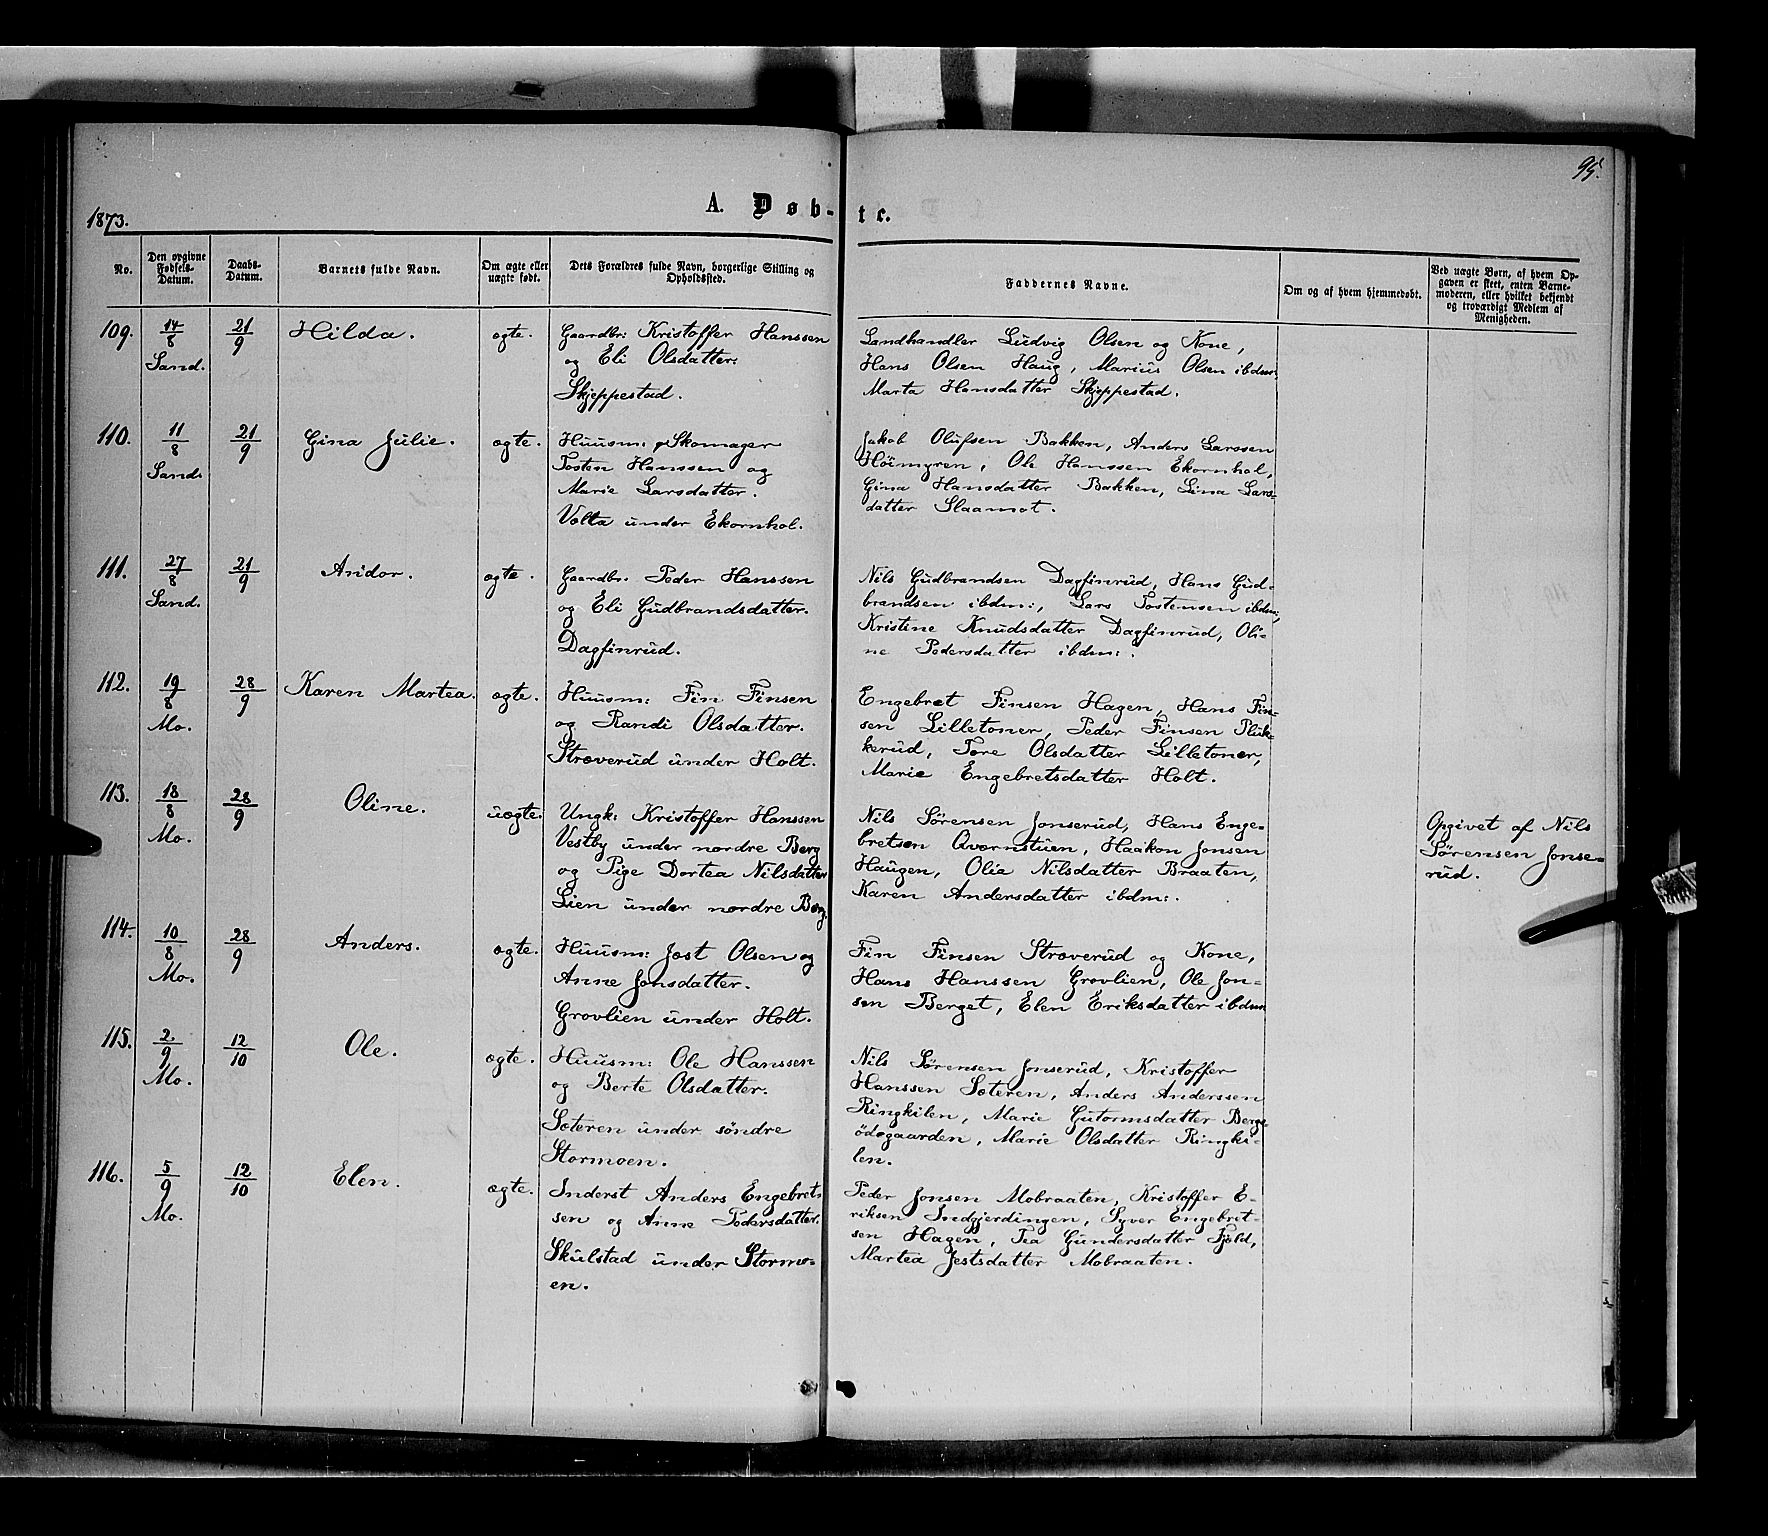 95.
1873.
A. Døb-te.
No.
Den opgivne Fødsels-Datum.
Daabs-Datum.
Barnets fulde Navn.
Om ægte eller uægte født.
Dets Forældres fulde Navn, borgerlige Stilling og Opholdssted.
Faddernes Navne.
Om og af hvem hjemmedøbt.
Ved uægte Børn, af hvem Opgaven er skeet, enten Barnemoderen, eller hvilket bekjendt og troværdigt Medlem af Menigheden.
109. 14/8 Sand. 21/9 Hilda. ægte.
Gaardbr: Kristoffer Hanssen
og Eli Olsdatter:
Skjeppestad.
Landhandler Ludvig Olsen og Kone,
Hans Olsen Haug, Marius Olsen ibdm:
Marta Hansdatter Skjeppestad.
110. 11/8 Sand. 21/9 Gina Julie. ægte.
Huusm: & Skomager
Tosten Hanssen og
Marie Larsdatter.
Volla under Ekornhol.
Jakob Olufsen Bakken, Anders Larssen
Höimyren, Ole Hanssen Ekornhol,
Gina Hansdatter Bakken, Lina Lars-
datter Slaamot.
111. 27/8 Sand. 21/9 Andor. ægte.
Gaardbr. Peder Hanssen
og Eli Gudbrandsdatter.
Dagfinrud.
Nils Gudbrandsen Dagfinrud, Hans Gud-
brandsen ibdm:, Lars Tostensen ibdm;
Kristine Knudsdatter Dagfinrud, Oli-
ne Pedersdatter ibdm:.
112. 19/8 Mo. 28/9 Karen Martea. ægte.
Huusm: Fin Finsen
og Randi Olsdatter.
Stræverud under Holt.
Engebret Finsen Hagen, Hans Fin-
sen Lilletoner, Peder Finsen Pluk-
kerud, Tore Olsdatter Lilletoner,
Marie Engebretsdatter Holt.
113. 18/8 Mo. 28/9 Oline. uægte.
Ungk: Kristoffer Hanssen
Vestby under nordre Berg
og Pige Dortea Nilsdatter
Lien under nordre Berg.
Nils Sørensen Jonserud, Hans Enge-
bretsen Qværnstuen, Haakon Jonsen
Haugen, Olia Nilsdatter Braaten,
Karen Andersdatter ibdm:.
Opgivet af Nils
Sørensen Jonse-
rud.
114. 10/8 Mo. 28/9 Anders. ægte.
Huusm: Jost Olsen og
Anne Jonsdatter.
Grovlien under Holt.
Fin Finsen Stræverud og Kone,
Hans Hanssen Grovlien, Ole Jon-
sen Berget, Elen Eriksdatter ibdm
115. 2/9 Mo. 12/10 Ole. ægte.
Huusm: Ole Hanssen
og Berte Olsdatter.
Sæteren under söndre
Stormoen.
Nils Sørensen Jonserud, Kristoffer
Hanssen Sæteren, Anders Anderssen
Ringkilen, Marie Gutormsdatter Bergs
ödegaarden, Marie Olsdatter Ringki-
len.
116. 5/9 Mo. 12/10 Elen. ægte.
Inderst Anders Engebret-
sen og Anne Pedersdatter.
Skulstad under Stormo-
en.
Peder Jonsen Mobraaten, Kristoffer E-
riksen Indgjerdingen, Syver Engebret-
sen Hagen, Tea Gundersdatter Fjeld,
Martea Jestsdatter Mobraaten.